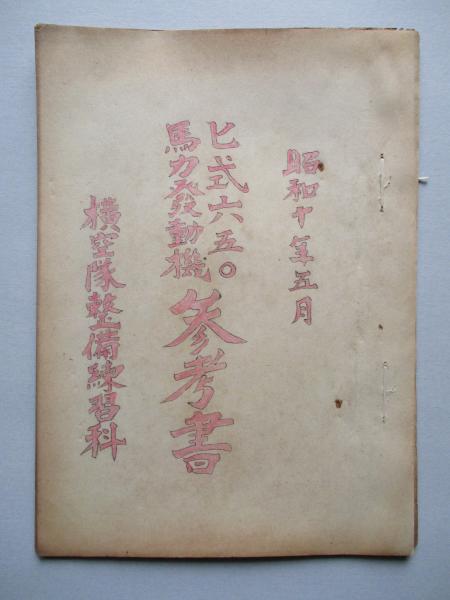 昭和十年五月
ヒ式六五〇
馬力發動機
參考書
橫空隊整備練習科